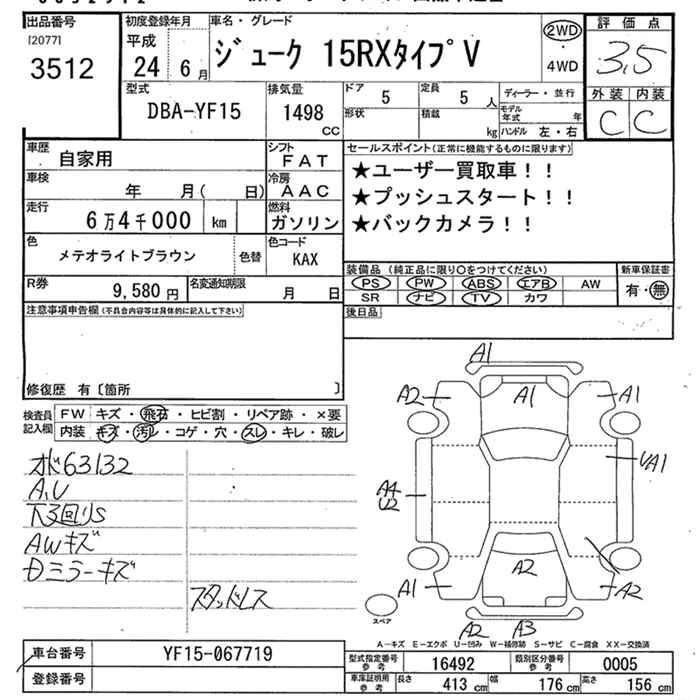 出品番号
[2077]
3512
初度登録年月
平成
24 6月
車名・グレード
ジューク 15RXタイプV
2WD
・
4WD
評価点
3.5
外装 内装
C C
型式
DBA-YF15
排気量
1498
CC
ドア
5
定員
5人
ディーラー・並行
形状
積載
kg
モデル年式
年
ハンドル 左・右
車歴
自家用
シフト
FAT
車検
年 月( 日)
冷房
AAC
走行
6万4千000 km
燃料
ガソリン
色
メテオライトブラウン
色替
色コード
KAX
R券
9,580円
名変通知期限
月 日
セールスポイント(正常に機能するものに限ります)
★ユーザー買取車！！
★プッシュスタート！！
★バックカメラ！！
装備品(純正品に限り○をつけてください)
PS PW ABS エアB AW
SR ナビ TV カワ
新車保証書
有・無
後日品
注意事項申告欄(不具合内容等は具体的に記入して下さい)
修復歴 有〔箇所 〕
検査員
記入欄
FW キズ・飛石・ヒビ割・リペア跡・×要
内装 キズ・汚レ・コゲ・穴・スレ・キレ・破レ
A,U
下回りS
AWキズ
ミラーキズ
スタッドレス
A1
A2
A1
A1
UA1
A4
U2
A1
A2
A2
A2
A3
スペア
A-キズ E-エクボ U-凹み W-補修跡 S-サビ C-腐食 XX-交換済
車台番号
YF15-067719
登録番号
型式指定番号
参考
16492
類別区分番号
参考
0005
車庫証明用
参考
長さ
413 cm
幅
176 cm
高さ
156 cm